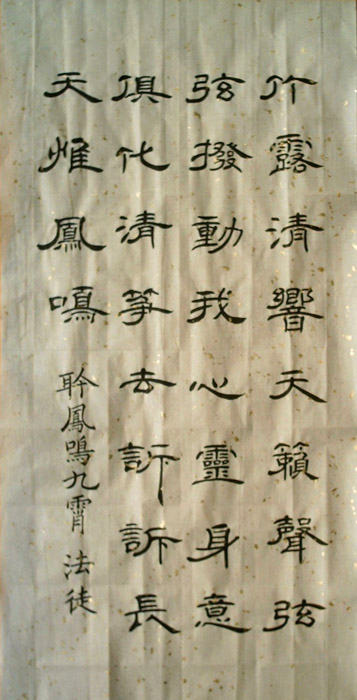 竹露清響天籟聲弦
弦撥動我心靈身意
俱化清箏去訴訴長
天惟鳳鳴
聆鳳鳴九霄 法徒